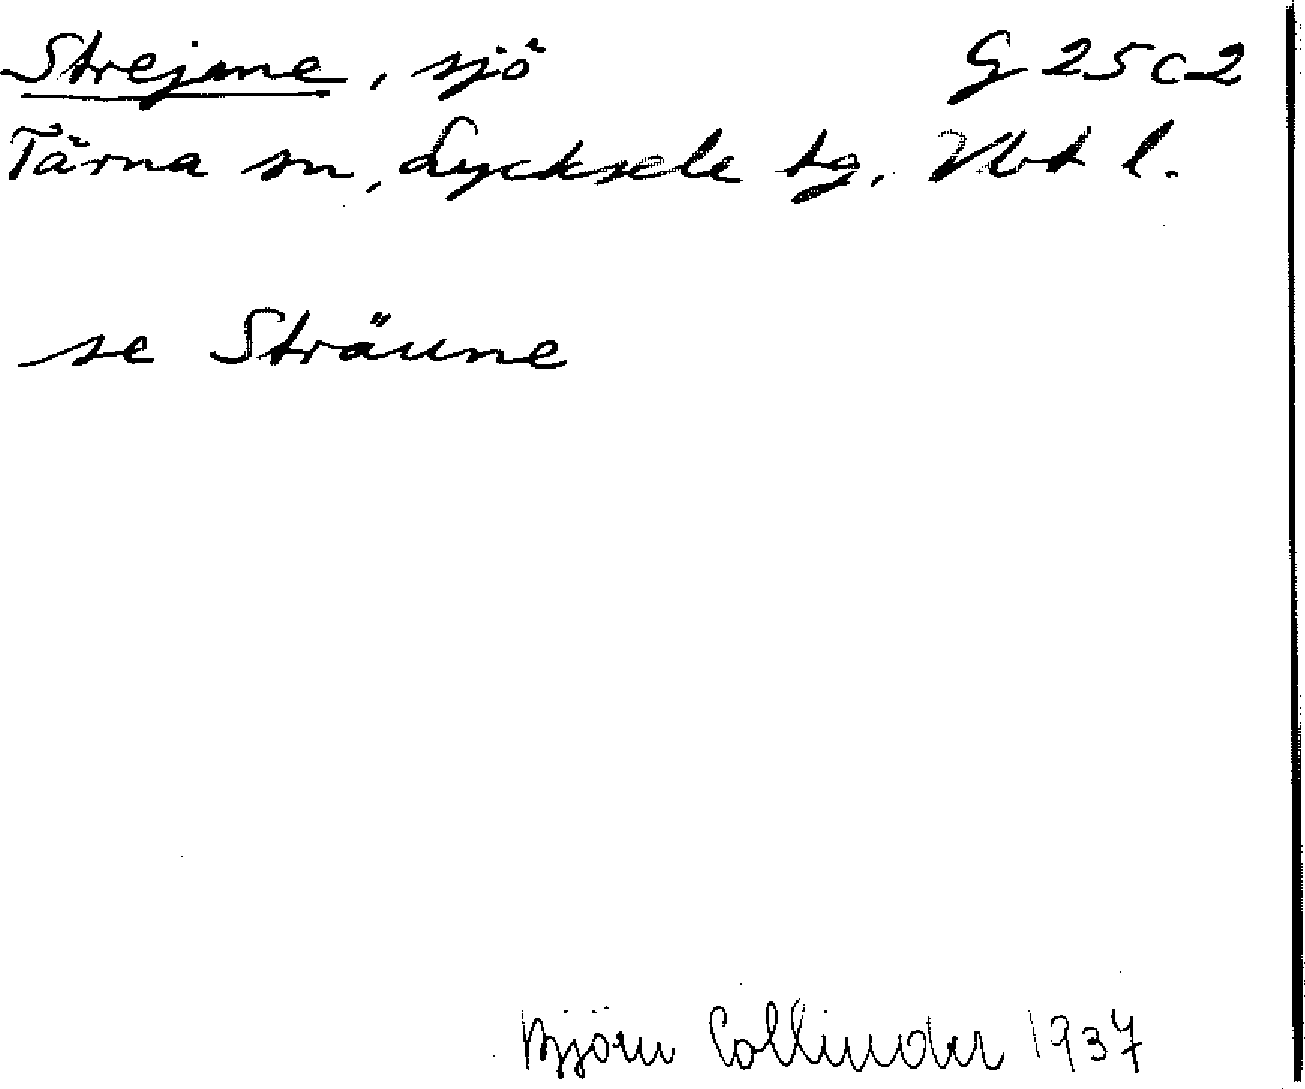 Strejme, sjö G 25 c 2
Tärna sn, Lycksele tg, Vbt l.
se Sträune
Björn Collinder 1937